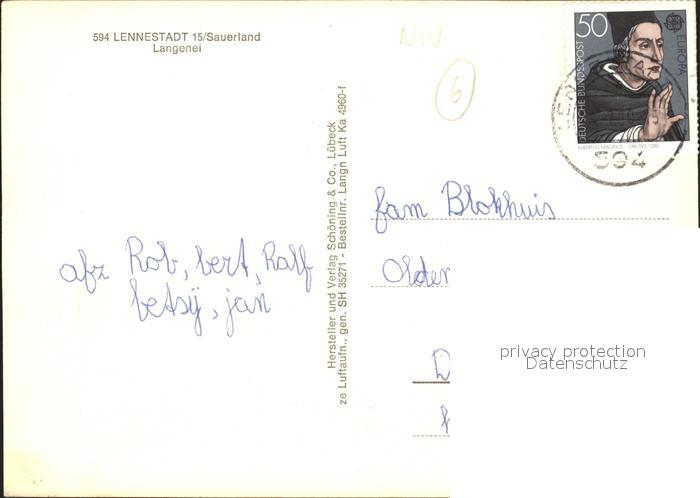 594 LENNESTADT 15/Sauerland
Langenei
NW
6
50
DEUTSCHE BUNDESPOST
EUROPA
ALBERTUS MAGNUS
594
Hersteller und Verlag Schöning & Co., Lübeck
ze Luftaufn., gen. SH 35271 - Bestellnr. Langn Luft Ka 4960-f
fam Blokhuis
Olden
afz Rob, bert, Ralf
betsÿ, jan
privacy protection
Datenschutz